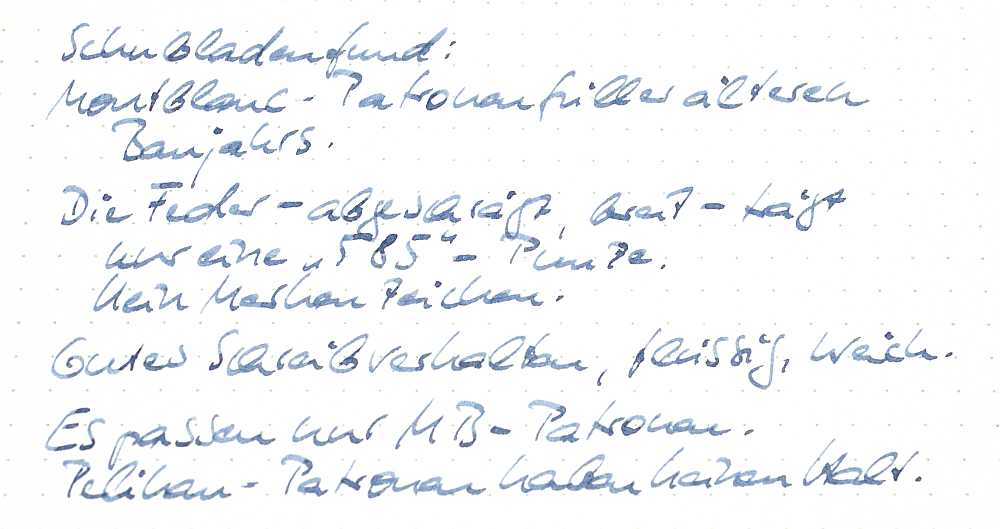 Schubladenfund:
Montblanc-Patronenfüller älteren
Baujahrs.
Die Feder - abgeschrägt, breit - trägt
nur eine „585"- Punze.
Kein Markenzeichen.
Gutes Schreibverhalten, flüssig, weich.
Es passen nur MB-Patronen.
Pelikan-Patronen haben keinen Halt.